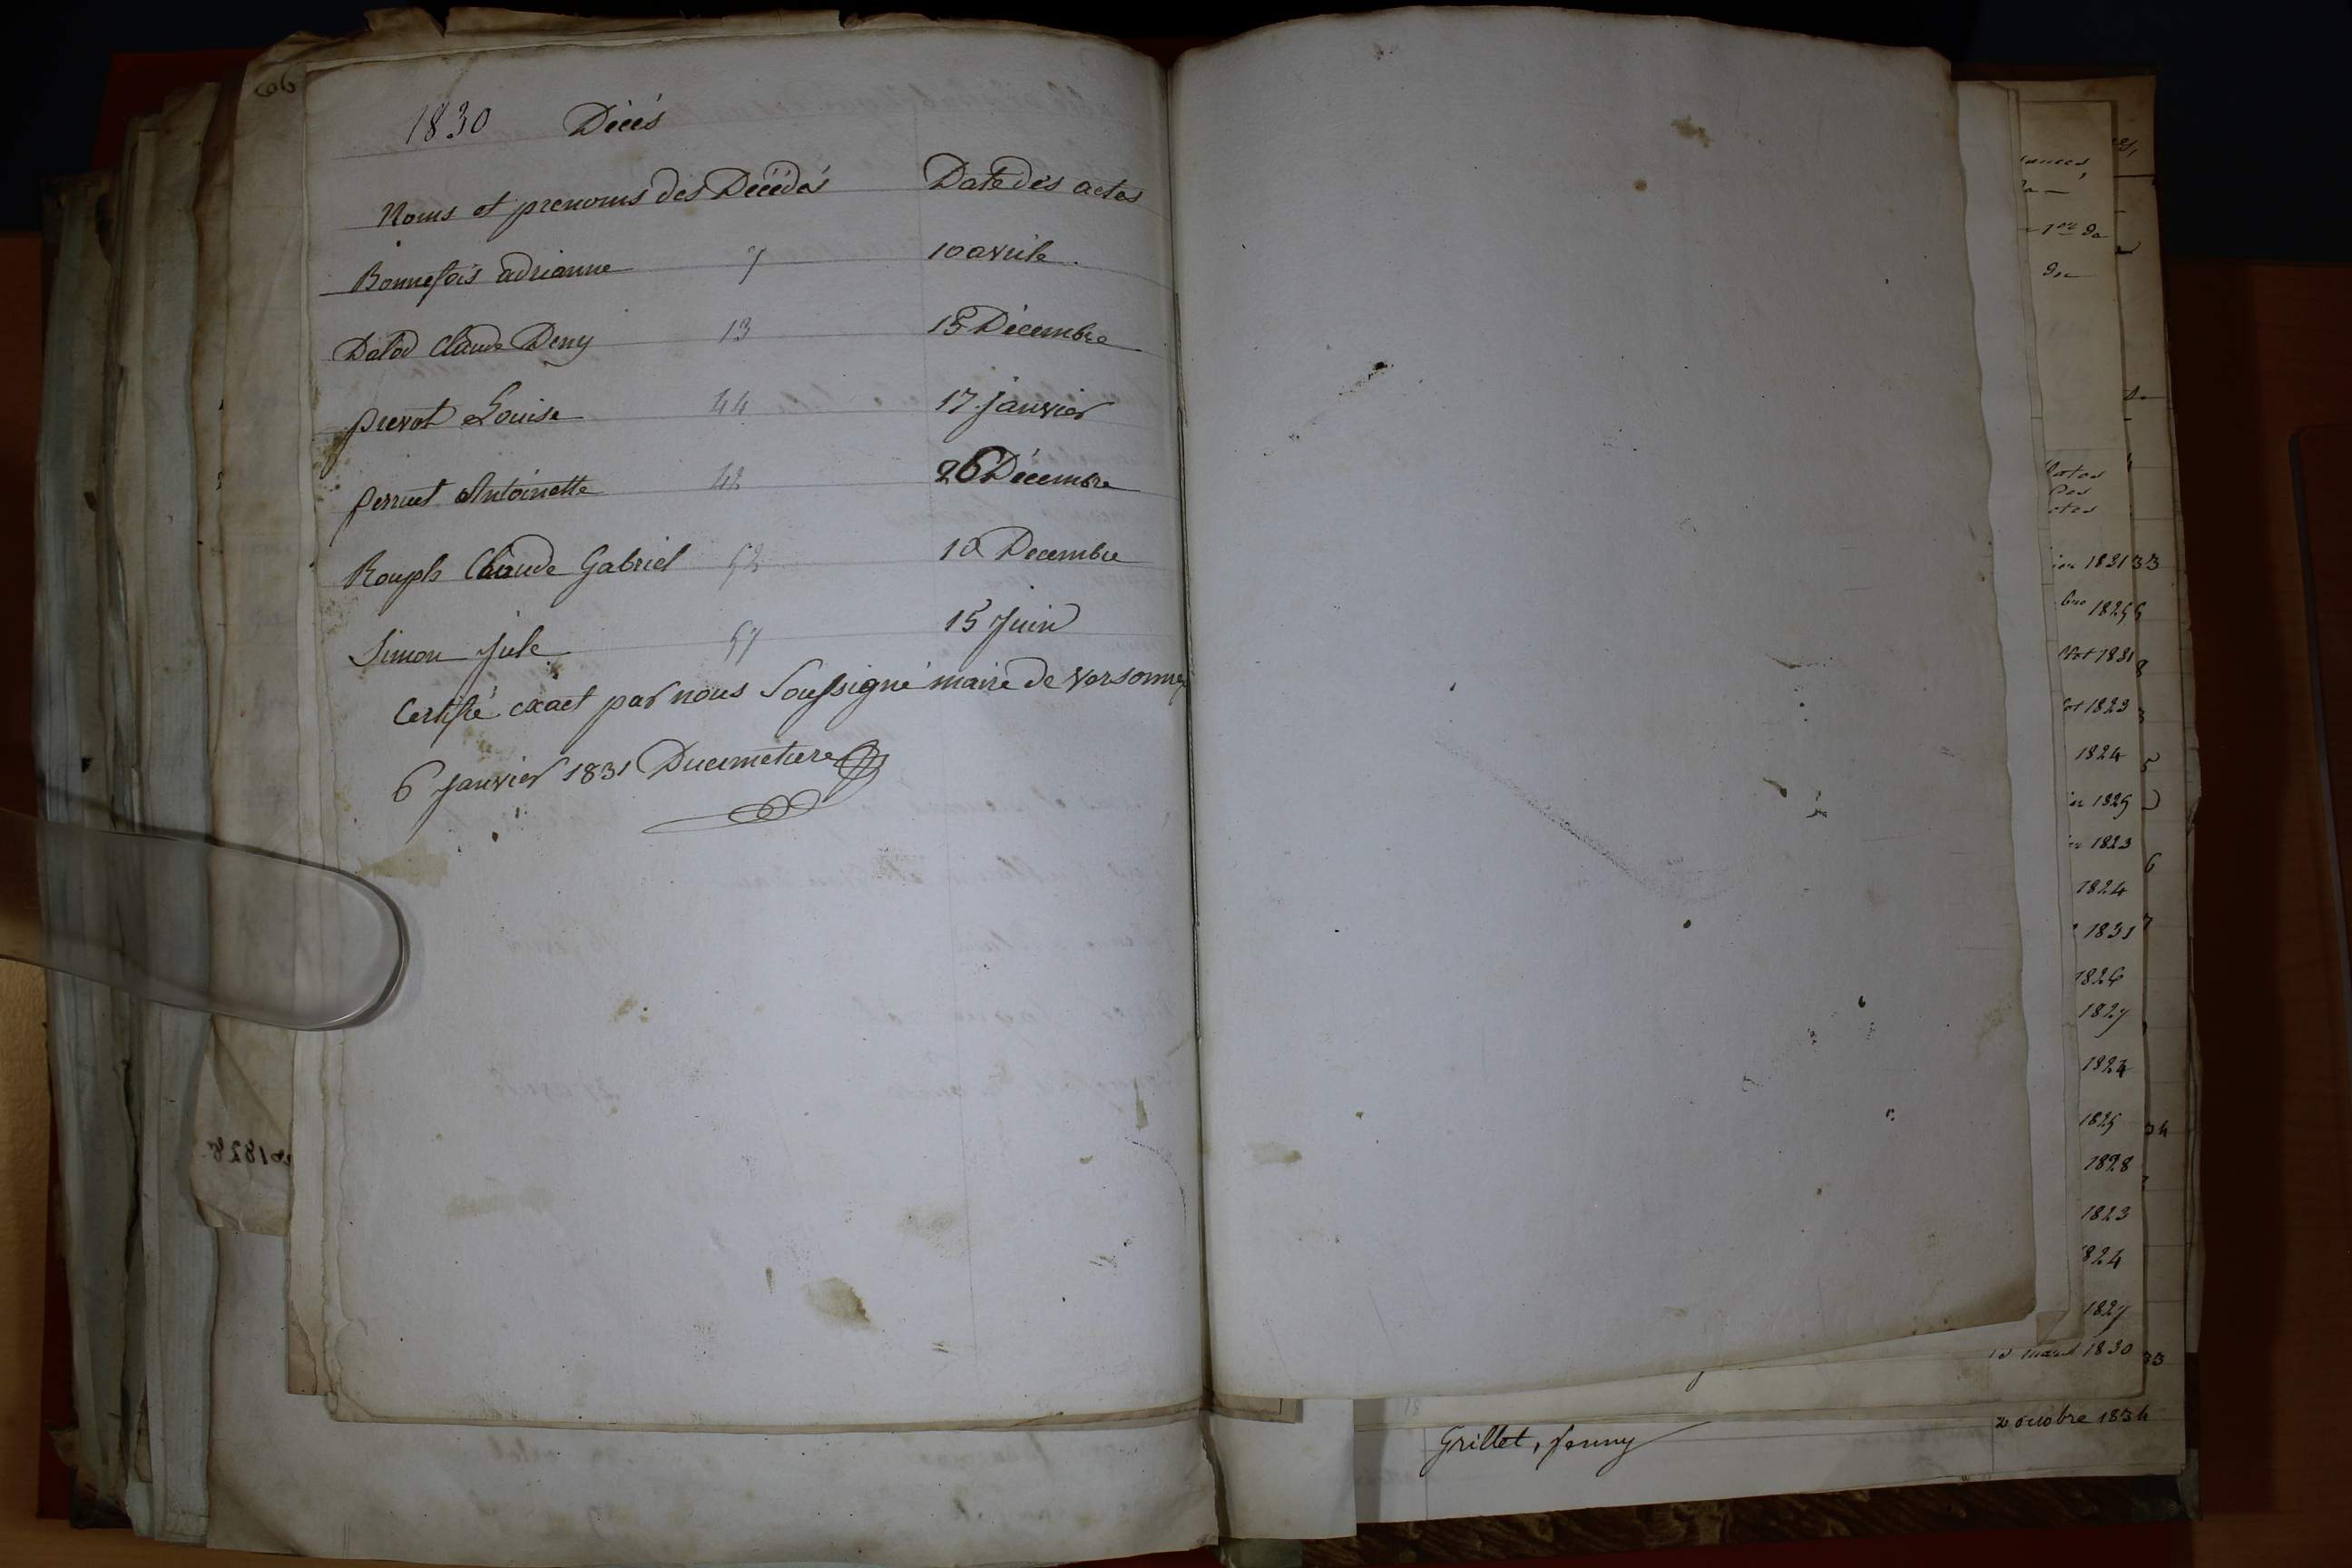 1830 Décés
Noms et prenoms des Décédés Date des actes
Bonnefois adrianne 7 10 avrile
Dalod Claude Deny 13 15 Décembre
prevot Louise 44 17 janvier
perruet Antoinette 42 26 Décembre
Rouph Claude Gabriel 52 10 Decembre
Simon jule 57 15 Juin
Certifié exact par nous Soussigné maire de Versonnex
6 Janvier 1831 Ducimetiere
Dates
des
1821 33
1825
1831
1823
1824 5
1825
1823 6
1824
1831 7
1826
1827
1824
1825 34
1828
1823
1824
1827
mars 1830 33
Grillet, Jenny 2 octobre 1834
1828